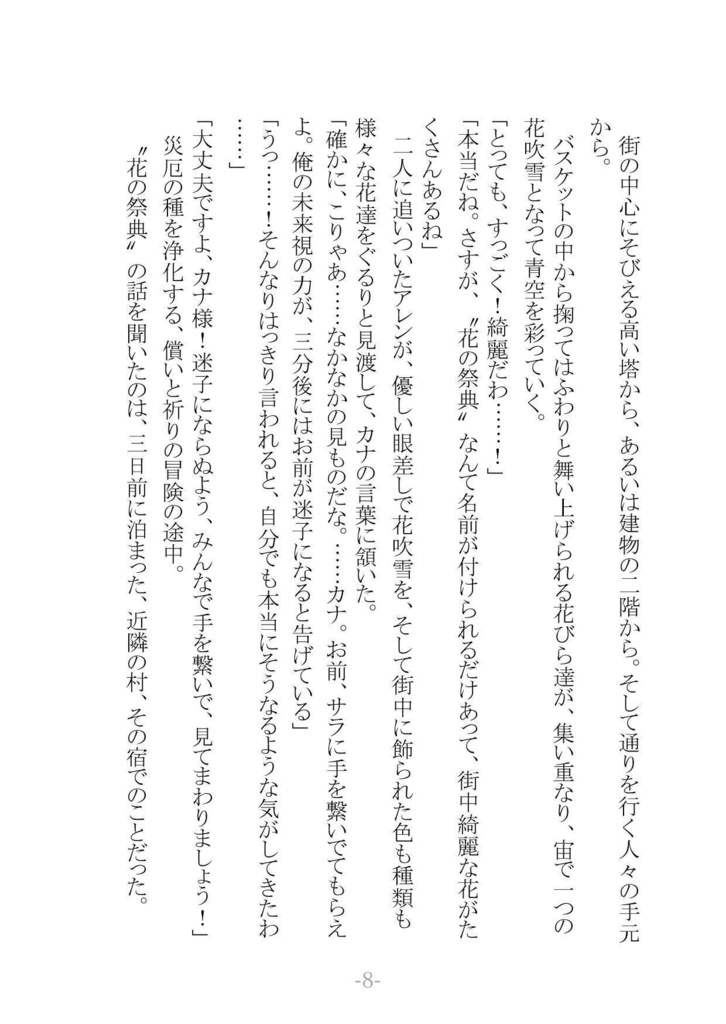 街の中心にそびえる高い塔から、あるいは建物の二階から。そして通りを行く人々の手元
から。
　バスケットの中から掬ってはふわりと舞い上げられる花びら達が、集い重なり、宙で一つの
花吹雪となって青空を彩っていく。
「とっても、すっごく！綺麗だわ……！」
「本当だね。さすが、〝花の祭典〟なんて名前が付けられるだけあって、街中綺麗な花がた
くさんあるね」
　二人に追いついたアレンが、優しい眼差しで花吹雪を、そして街中に飾られた色も種類も
様々な花達をぐるりと見渡して、カナの言葉に頷いた。
「確かに、こりゃあ……なかなかの見ものだな。……カナ。お前、サラに手を繋いでてもらえ
よ。俺の未来視の力が、三分後にはお前が迷子になると告げている」
「うっ……！そんなりはっきり言われると、自分でも本当にそうなるような気がしてきたわ
……」
「大丈夫ですよ、カナ様！迷子にならぬよう、みんなで手を繋いで、見てまわりましょう！」
　災厄の種を浄化する、償いと祈りの冒険の途中。
　〝花の祭典〟の話を聞いたのは、三日前に泊まった、近隣の村、その宿でのことだった。
-8-